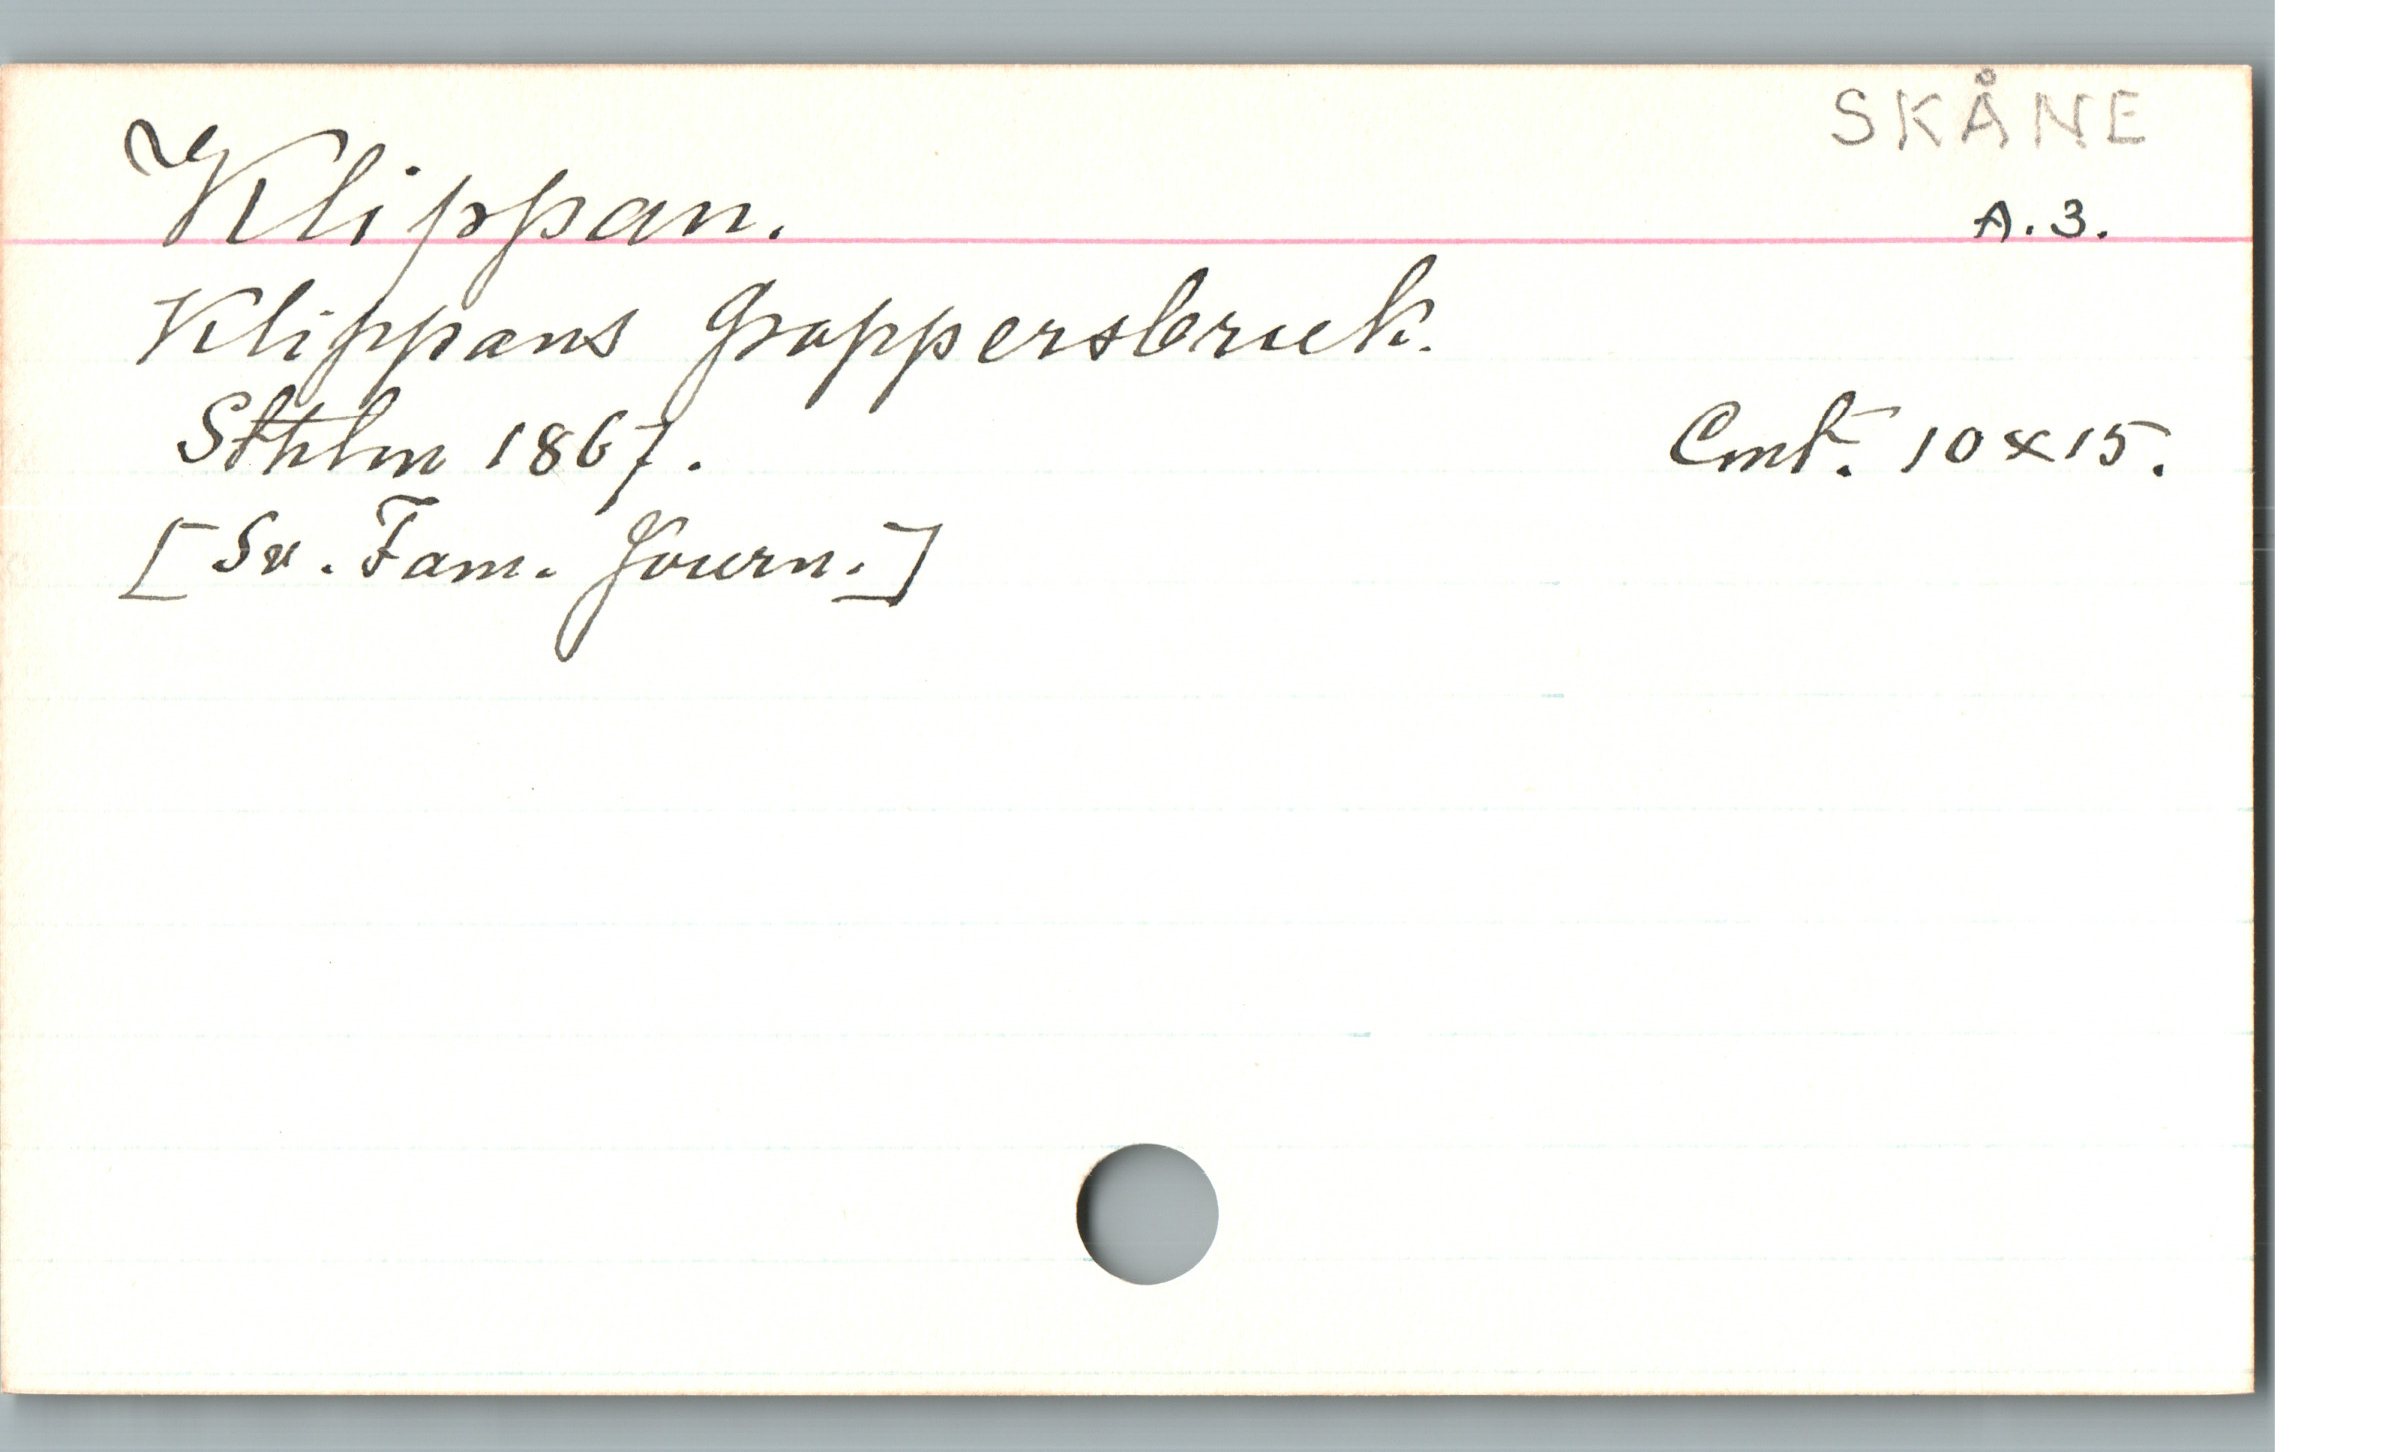 SKÅNE
Klippan. A.3.
Klippans pappersbruk.
Sthlm 1867. Cmt. 10x15.
[Sv. Fam. Journ.]